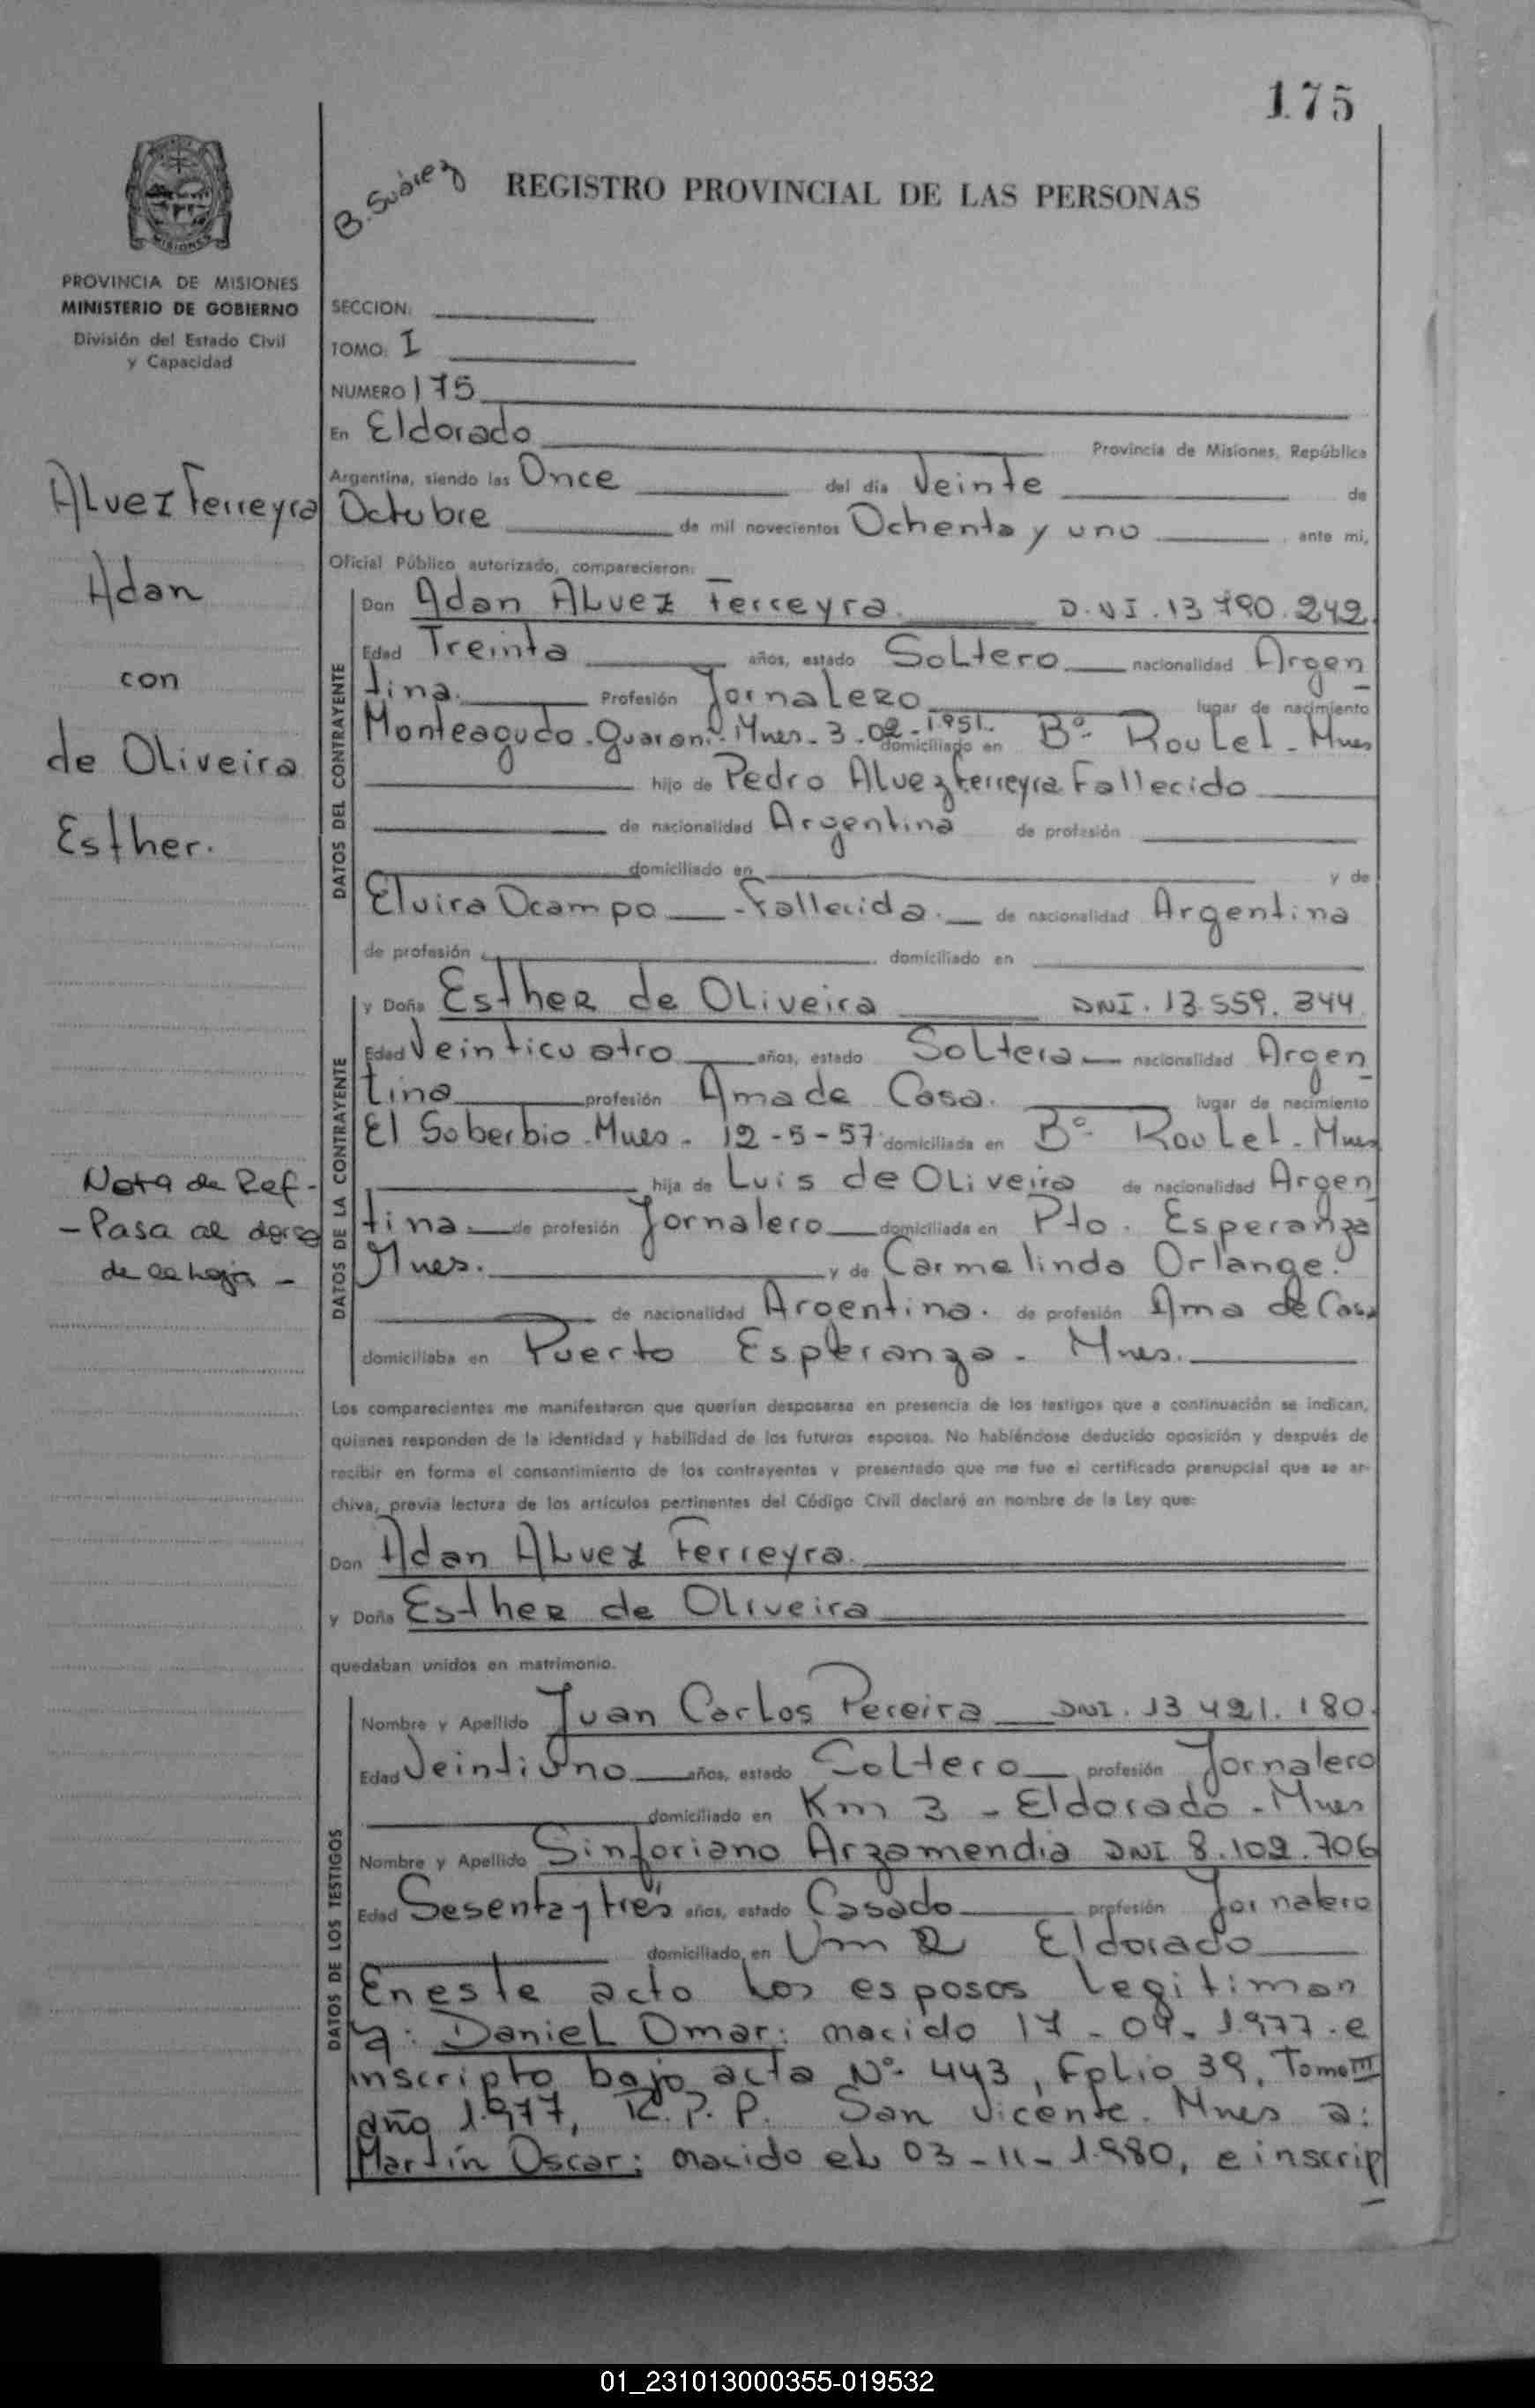 175
B. Suárez
REGISTRO PROVINCIAL DE LAS PERSONAS
MISIONES
PROVINCIA DE MISIONES
MINISTERIO DE GOBIERNO
División del Estado Civil
y Capacidad
SECCION:
TOMO: I
NUMERO 175
En Eldorado Provincia de Misiones, República
Argentina, siendo las Once del día Veinte de
Octubre de mil novecientos Ochenta y uno ante mi,
Oficial Público autorizado, comparecieron:
ALvez Ferreyra
Adan
con
de OLiveira
Esther.
Nota de Ref-
- Pasa al dorso
de la hoja -
DATOS DEL CONTRAYENTE
Don Adan ALvez Ferreyra. D.N.I. 13.790.242.
Edad Treinta años, estado SoLtero nacionalidad Argen
tina. Profesión JornaLero lugar de nacimiento
Monteagudo. Guaraní. Mnes. 3.02-1951. domiciliado en Bº- RouLet - Mnes
hijo de Pedro Alvez Ferreyra Fallecido
de nacionalidad Argentina de profesión
domiciliado en y de
Elvira Ocampo - Fallecida. de nacionalidad Argentina
de profesión domiciliado en
DATOS DE LA CONTRAYENTE
y Doña Esther de OLiveira DNI. 13.559.344
Edad Veinticuatro años, estado SoLtera nacionalidad Argen
tina profesión Ama de Casa. lugar de nacimiento
El Soberbio. Mnes. 12-5-57 domiciliada en Bº- RouLet - Mnes
hija de Luis de OLiveira de nacionalidad Argen
tina de profesión Jornalero domiciliada en Pto. Esperanza
Mnes. y de Carmelinda Orlange.
de nacionalidad Argentina. de profesión Ama de Casa
domiciliaba en Puerto Esperanza - Mnes.
Los comparecientes me manifestaron que querían desposarse en presencia de los testigos que a continuación se indican,
quienes responden de la identidad y habilidad de los futuros esposos. No habiéndose deducido oposición y después de
recibir en forma el consentimiento de los contrayentes y presentado que me fue el certificado prenupcial que se ar-
chiva, previa lectura de los artículos pertinentes del Código Civil declaré en nombre de la Ley que:
Don Adan ALvez Ferreyra.
y Doña Esther de OLiveira
quedaban unidos en matrimonio.
DATOS DE LOS TESTIGOS
Nombre y Apellido Juan CarLos Pereira DNI. 13.421.180.
Edad Veintiuno años, estado SoLtero profesión Jornalero
domiciliado en Km 3 - Eldorado - Mnes
Nombre y Apellido Sinforiano Arzamendia DNI 8.102.706
Edad Sesenta y tres años, estado Casado profesión Jornalero
domiciliado en Km 2 Eldorado
En este acto Los esposos Legitiman
a: DanieL Omar: nacido 17-09-1977. e
inscripto bajo acta Nº- 443, FoLio 39, Tomo III
año 1.977, R.P.P. San Vicente. Mnes a:
Martín Oscar: nacido eL 03-11-1.980, e inscrip
01_231013000355-019532